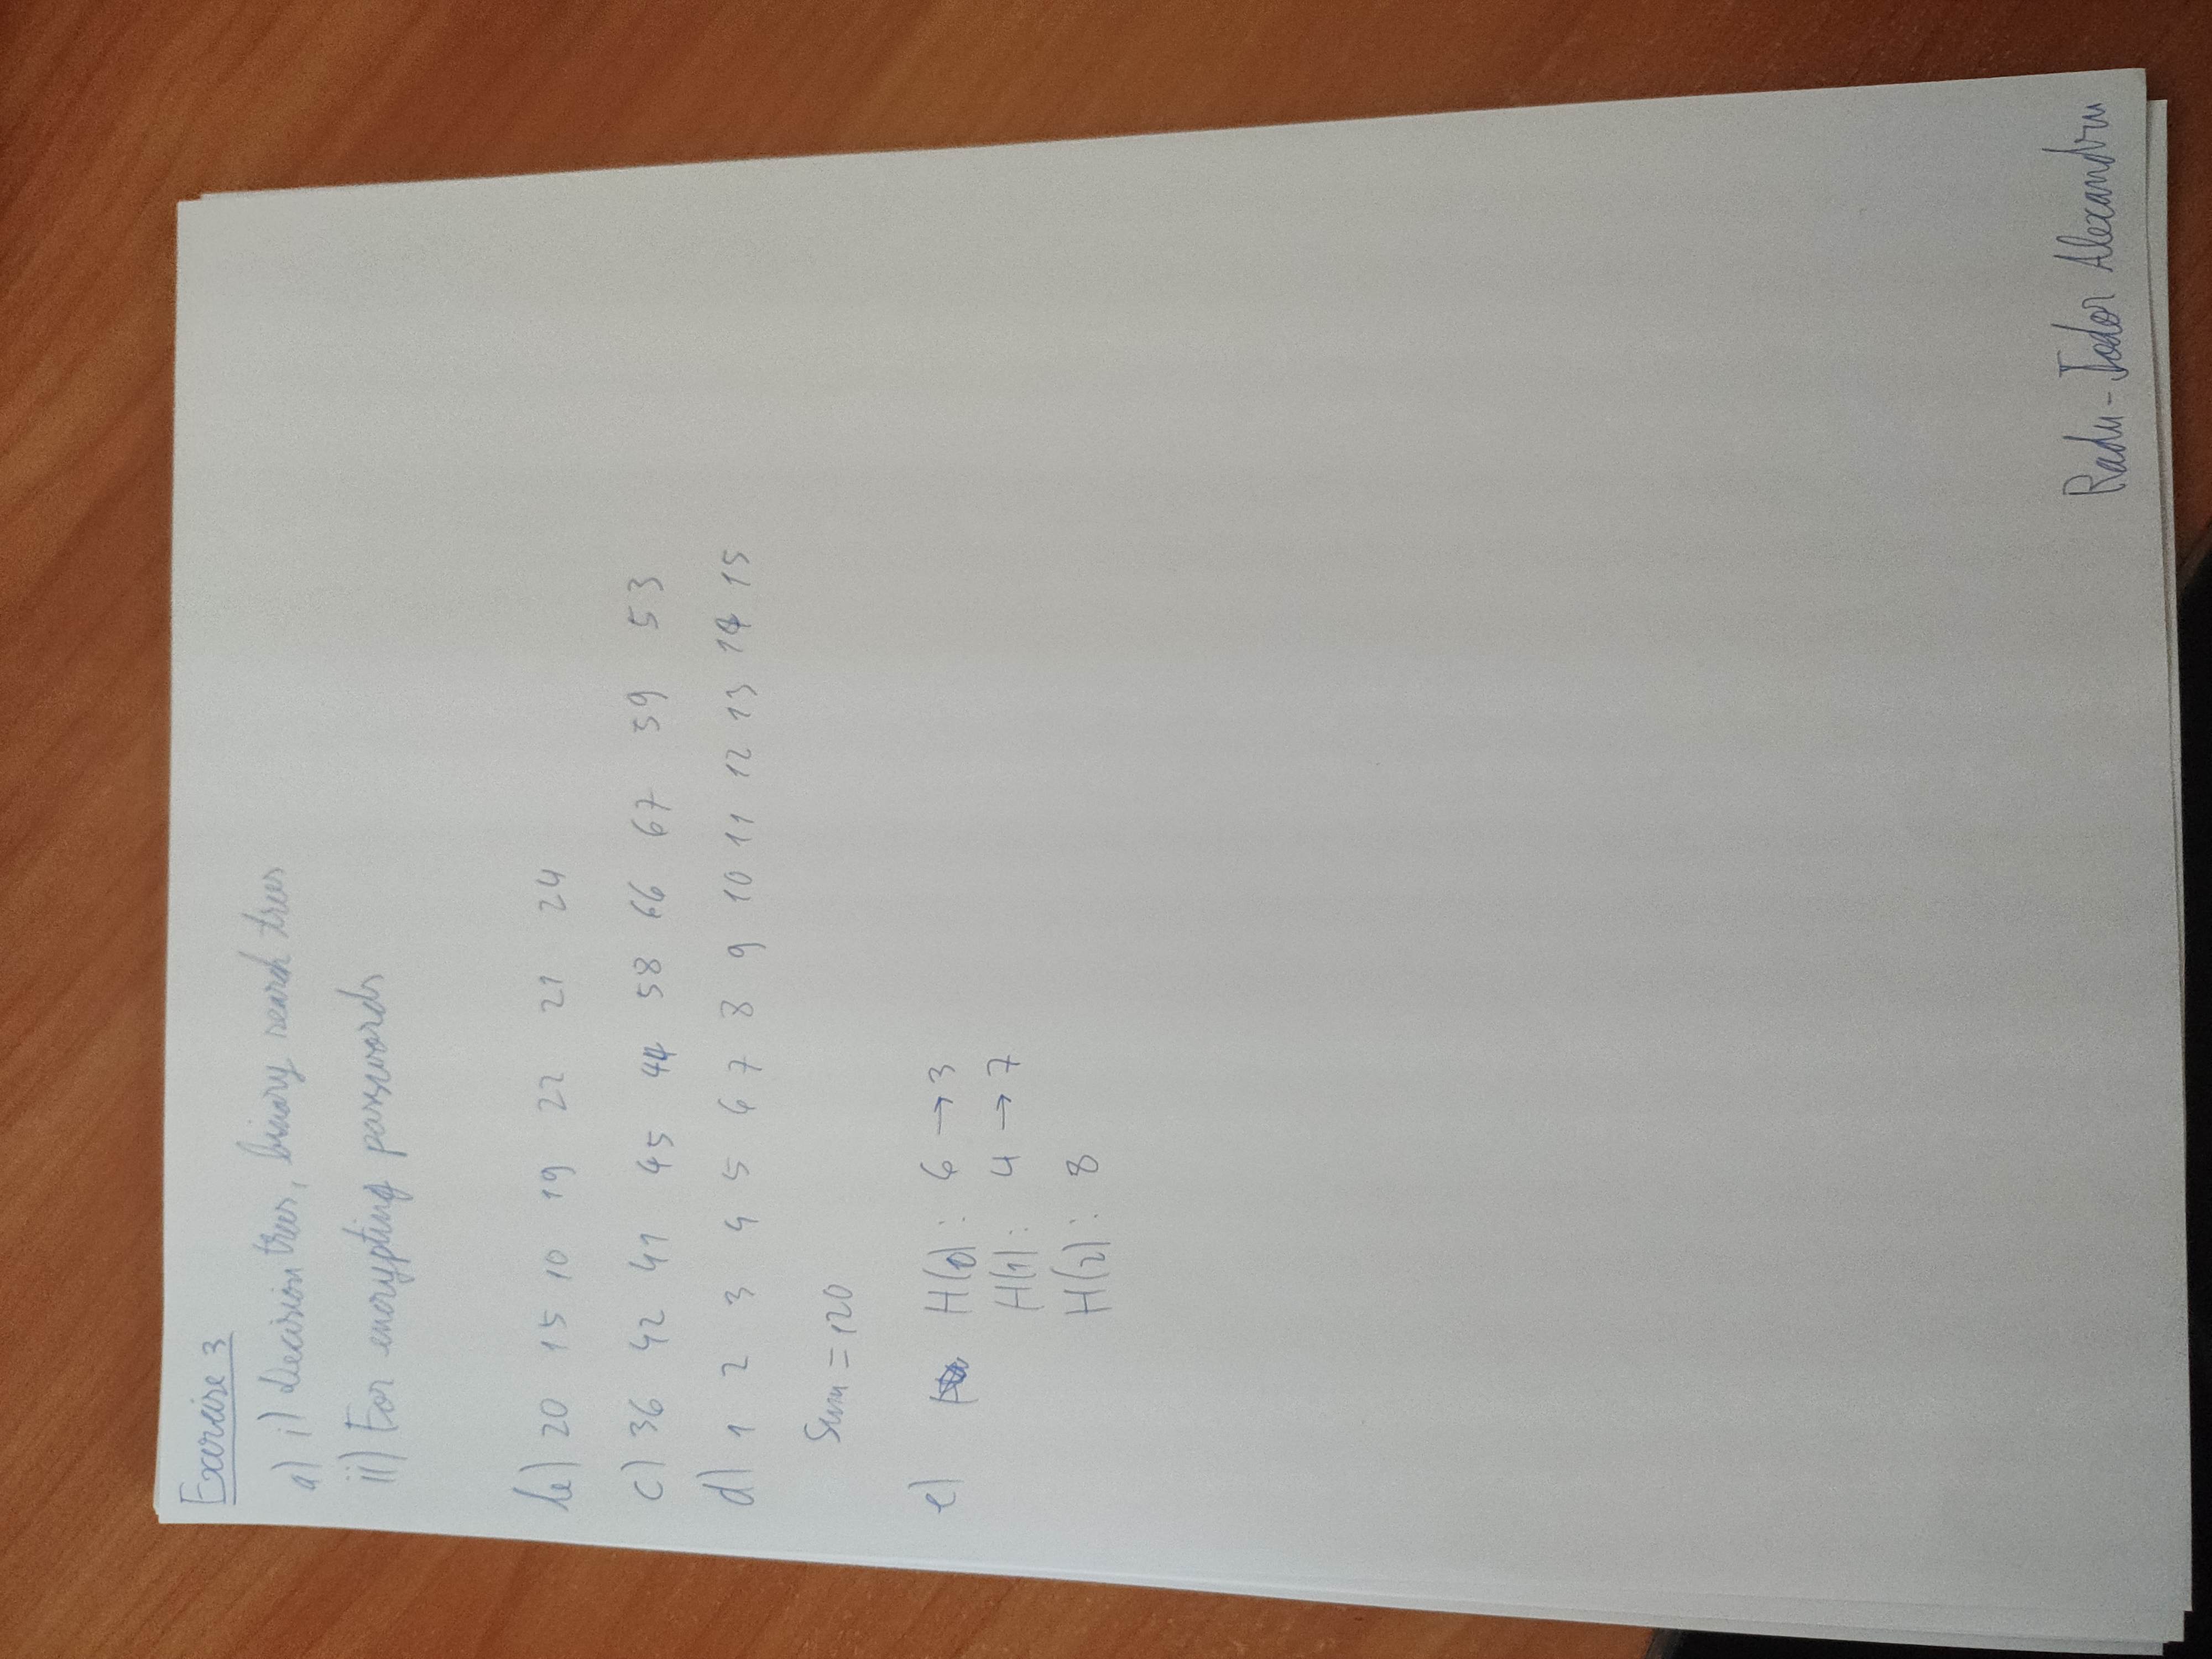 Exercise 3
a) i) Decision trees, binary search trees
ii) For encrypting passwords
b) 20 15 10 19 22 21 24
c) 36 42 41 45 44 58 66 67 59 53
d) 1 2 3 4 5 6 7 8 9 10 11 12 13 14 15
Sum = 120
e) H(0): 6 → 3
H(1): 4 → 7
H(2): 8
Radu-Todor Alexandru